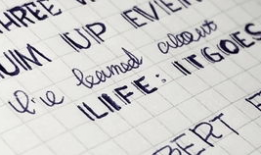 THREE W
UM UP EVERY
I've learned about
LIFE: IT GOES
BERT F